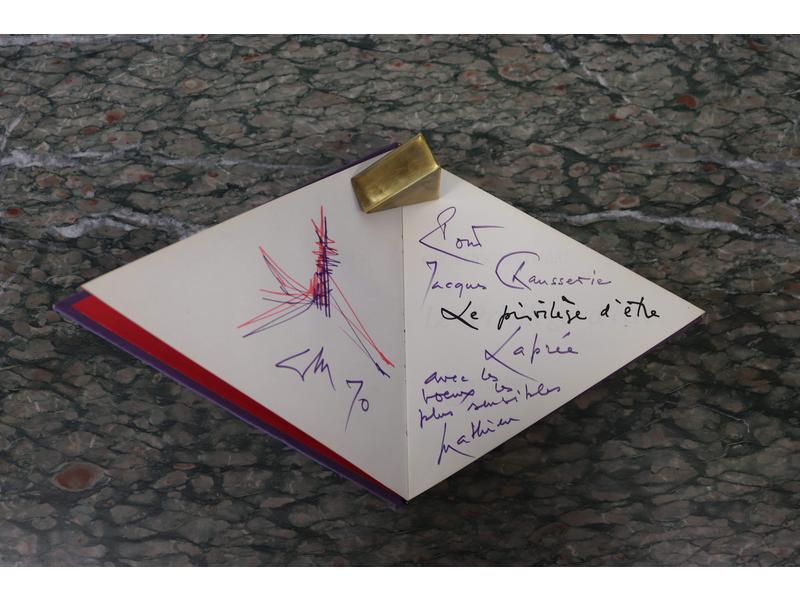 GM
70
Pour
Jacques Chausserie
Le privilège d'être
Laprée
avec les
voeux les
plus sensibles
Mathieu